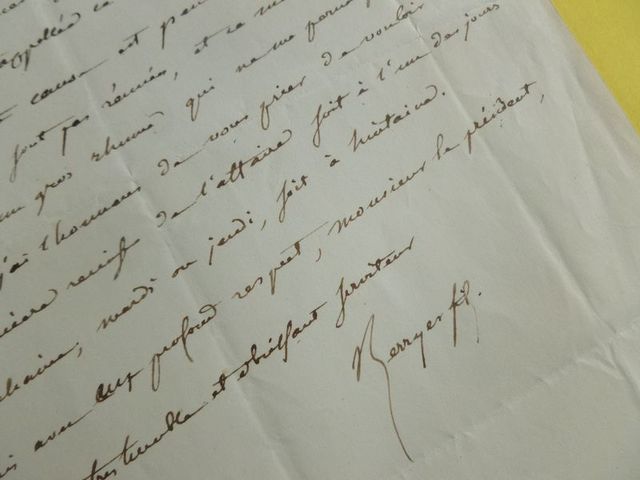 appellée ce
cause est
sont pas réunies, et ce
un gros rhume qui ne me
j'ai l'honneur de vous prier de vouloir
remise de l'affaire soit à l'un des jours
mardi ou jeudi, soit à huitaine.
avec un profond respect, monsieur le président,
très humble et obéissant serviteur
Berryer fil.